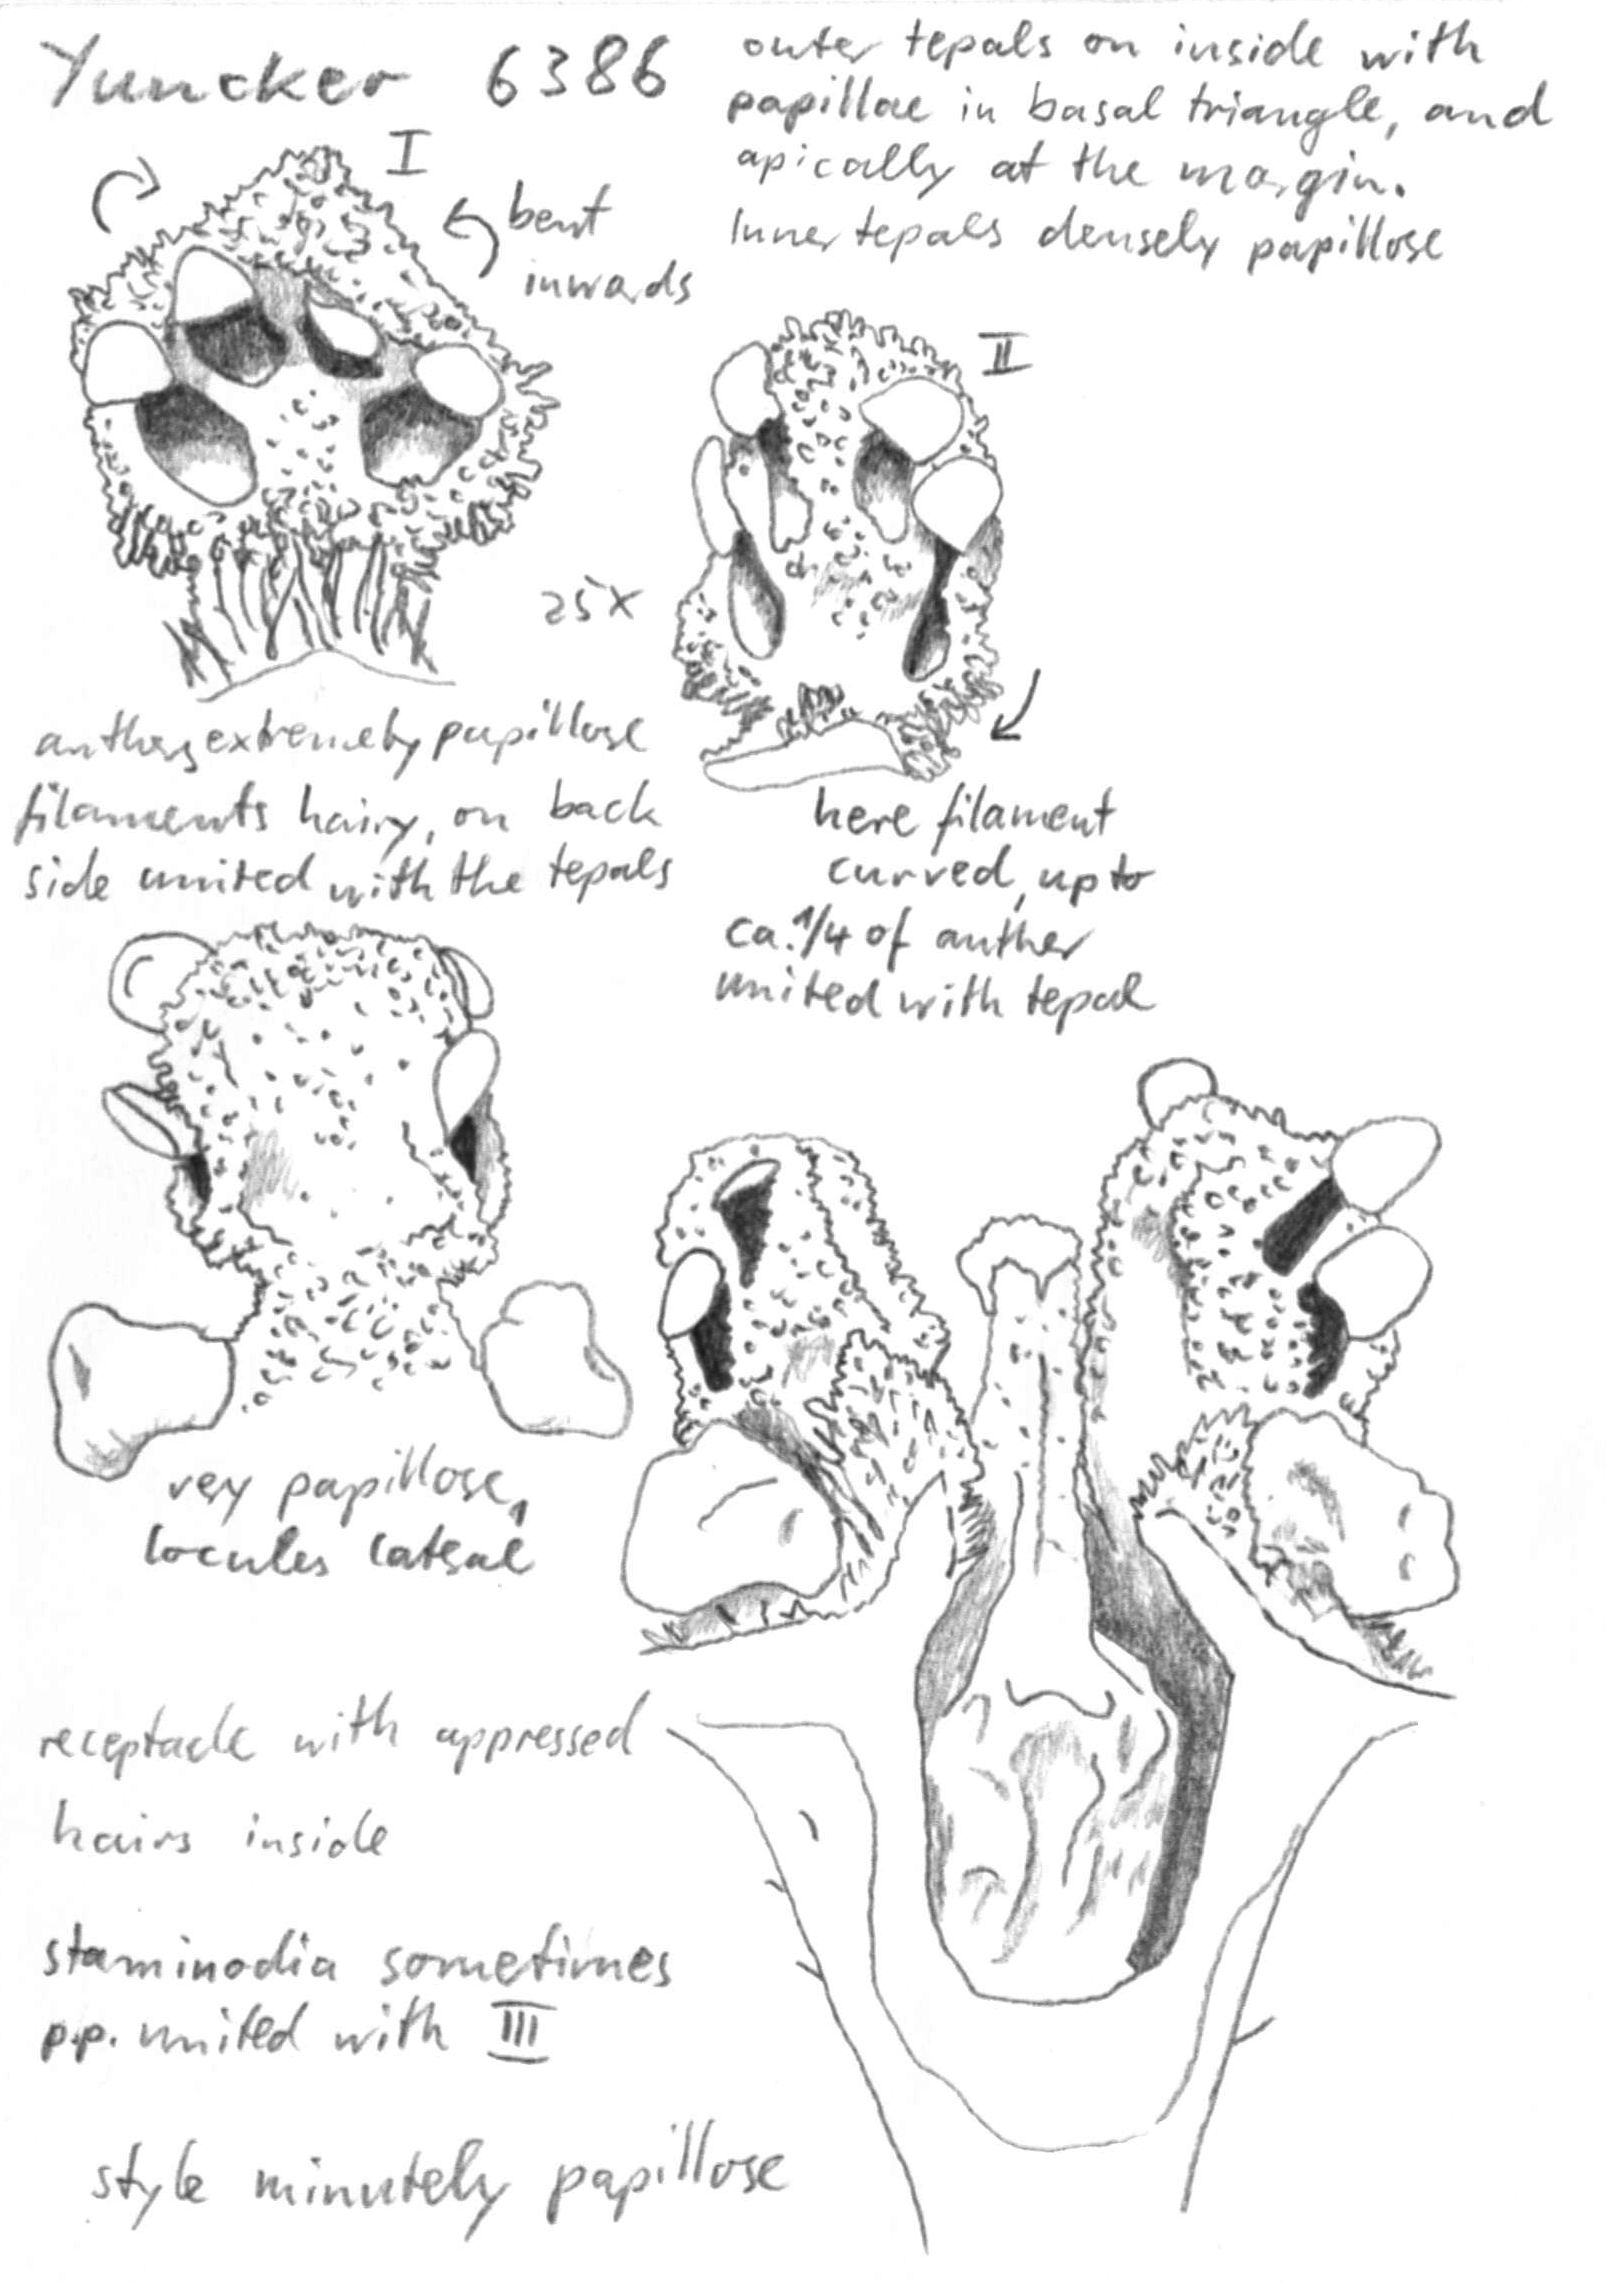 Yuncker 6386
outer tepals on inside with
papillae in basal triangle, and
apically at the margin.
Inner tepals densely papillose
I
bent
inwards
II
25x
anthers extremely papillose
filaments hairy, on back
side united with the tepals
here filament
curved, up to
ca. 1/4 of anther
united with tepal
very papillose,
locules lateral
receptacle with appressed
hairs inside
staminodia sometimes
p.p. united with III
style minutely papillose